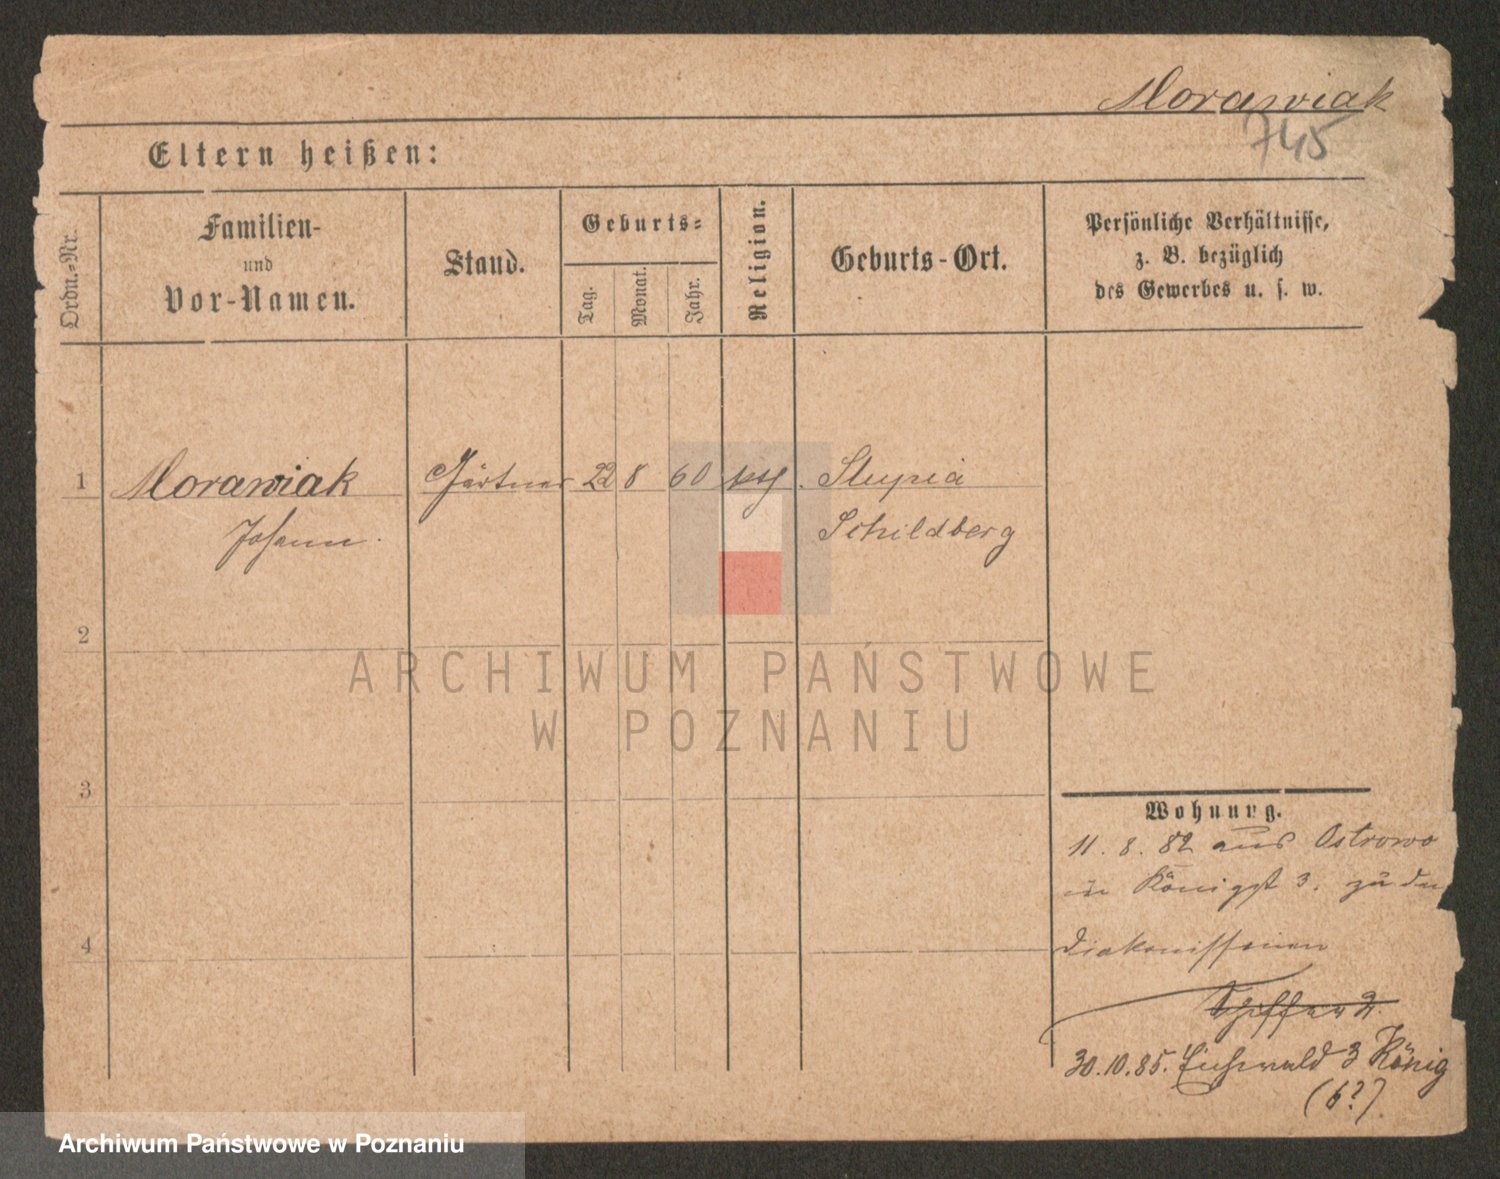 Morawiak
745
Eltern heißen:
Ordn.-Nr.
Familien-
und
Vor-Namen.
Stand.
Geburts-
Tag.
Monat.
Jahr.
Religion.
Geburts-Ort.
Persönliche Verhältnisse,
z. B. bezüglich
des Gewerbes u. s. w.
1 Morawiak Gärtner 22 8 60 Slupia
Johann. Schildberg
2
3
4
Wohnung.
11. 8. 82 aus Ostrowo
in Königst 3. zu den
Diakonissinnen
30.10.85. Eichwald 3 König
(6?)
ARCHIWUM PAŃSTWOWE
W POZNANIU
Archiwum Państwowe w Poznaniu